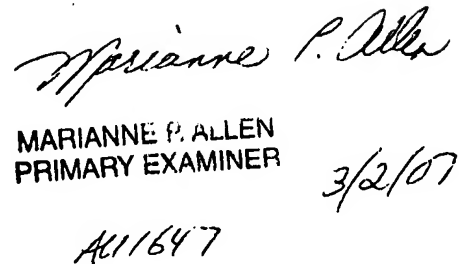 Marianne P. Allen
MARIANNE P. ALLEN
PRIMARY EXAMINER
3/2/07
AU1647